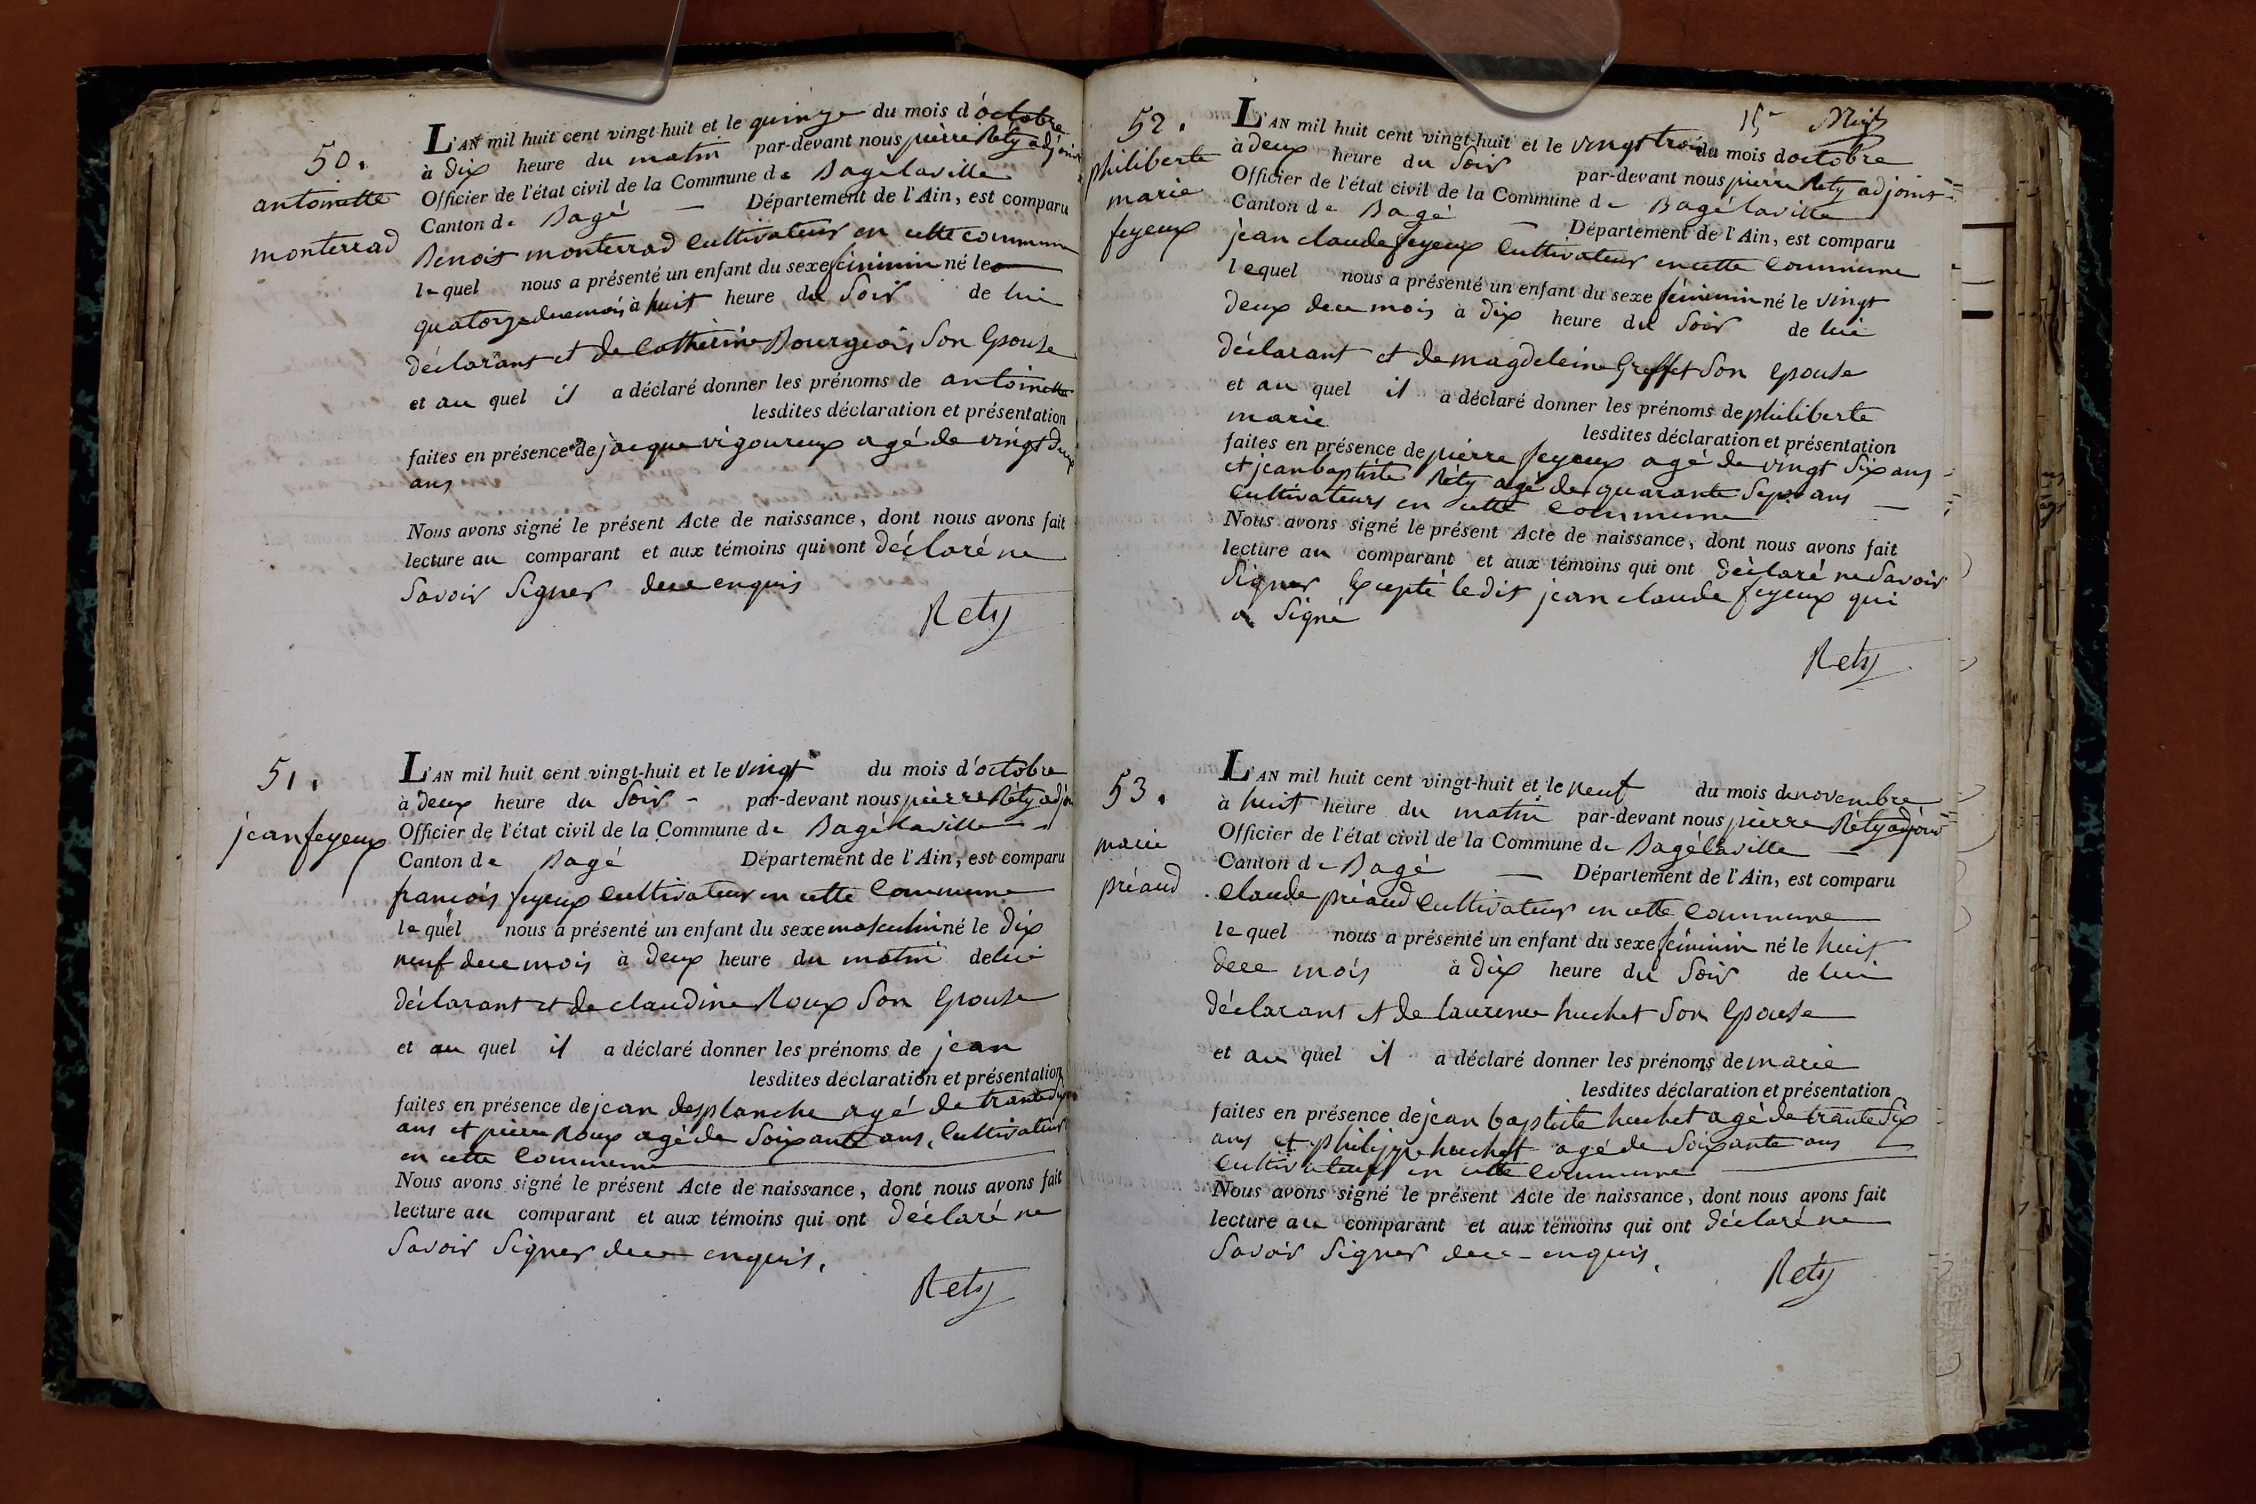 50.
antoinette
monterrad
L'AN mil huit cent vingt-huit et le quinze du mois d'octobre
à dix heure du matin par-devant nous pierre Réty adjoint
Officier de l'état civil de la Commune de Bagélaville
Canton de Bagé — Département de l'Ain, est comparu
Benoit monterrad Cultivateur en cette commune
lequel nous a présenté un enfant du sexe féminin né le
quatorze de ce mois à huit heure du Soir de lui
déclarant et de Catherine Bourgeois Son Epouse
et au quel il a déclaré donner les prénoms de antoinette
lesdites déclaration et présentation
faites en présence de jacque vigoureux agé de vingt deux
ans
Nous avons signé le présent Acte de naissance, dont nous avons fait
lecture au comparant et aux témoins qui ont déclaré ne
Savoir Signer de ce enquis
Rety
51.
jean feyeux
L'AN mil huit cent vingt-huit et le vingt du mois d'octobre
à deux heure du Soir - par-devant nous pierre Réty adjoint
Officier de l'état civil de la Commune de Bagélaville
Canton de Bagé Département de l'Ain, est comparu
francois feyeux Cultivateur en cette Commune
lequel nous a présenté un enfant du sexe masculin né le dix
neuf de ce mois à deux heure du matin de lui
déclarant et de claudine Roux Son Epouse
et au quel il a déclaré donner les prénoms de jean
lesdites déclaration et présentation
faites en présence de jean desplanche agé de trante
ans et pierre Roux agé de Soixante ans, Cultivateur
en cette Commune
Nous avons signé le présent Acte de naissance, dont nous avons fait
lecture au comparant et aux témoins qui ont déclaré ne
Savoir Signer de ce enquis.
Rety
15e
52.
philiberte
marie
feyeux
L'AN mil huit cent vingt-huit et le vingt trois du mois d'octobre
à deux heure du Soir par-devant nous pierre Réty adjoint
Officier de l'état civil de la Commune de Bagélaville
Canton de Bagé — Département de l'Ain, est comparu
jean claude feyeux Cultivateur en cette Commune
lequel nous a présenté un enfant du sexe féminin né le vingt
deux de ce mois à dix heure du Soir de lui
déclarant et de magdeleine Greffet Son Epouse
et au quel il a déclaré donner les prénoms de philiberte
marie
lesdites déclaration et présentation
faites en présence de pierre feyeux agé de vingt Six ans
et jean baptiste Réty agé de quarante Sept ans
Cultivateurs en cette Commune
Nous avons signé le présent Acte de naissance, dont nous avons fait
lecture au comparant et aux témoins qui ont déclaré ne Savoir
Signer Excepté le dit jean claude feyeux qui
a Signé
Réty
53.
marie
préaud
L'AN mil huit cent vingt-huit et le neuf du mois de novembre
à huit heure du matin par-devant nous pierre Réty adjoint
Officier de l'état civil de la Commune de Bagélaville
Canton de Bagé — Département de l'Ain, est comparu
Claude préaud Cultivateur en cette Commune
lequel nous a présenté un enfant du sexe féminin né le huit
de ce mois à dix heure du Soir de lui
déclarant et de laurence huchet Son Epouse
et au quel il a déclaré donner les prénoms de marie
lesdites déclaration et présentation
faites en présence de jean baptiste huchet agé de trante Six
ans et philippe huchet agé de Soixante ans
Cultivateurs en cette Commune
Nous avons signé le présent Acte de naissance, dont nous avons fait
lecture au comparant et aux témoins qui ont déclaré ne
Savoir Signer de ce - enquis.
Réty